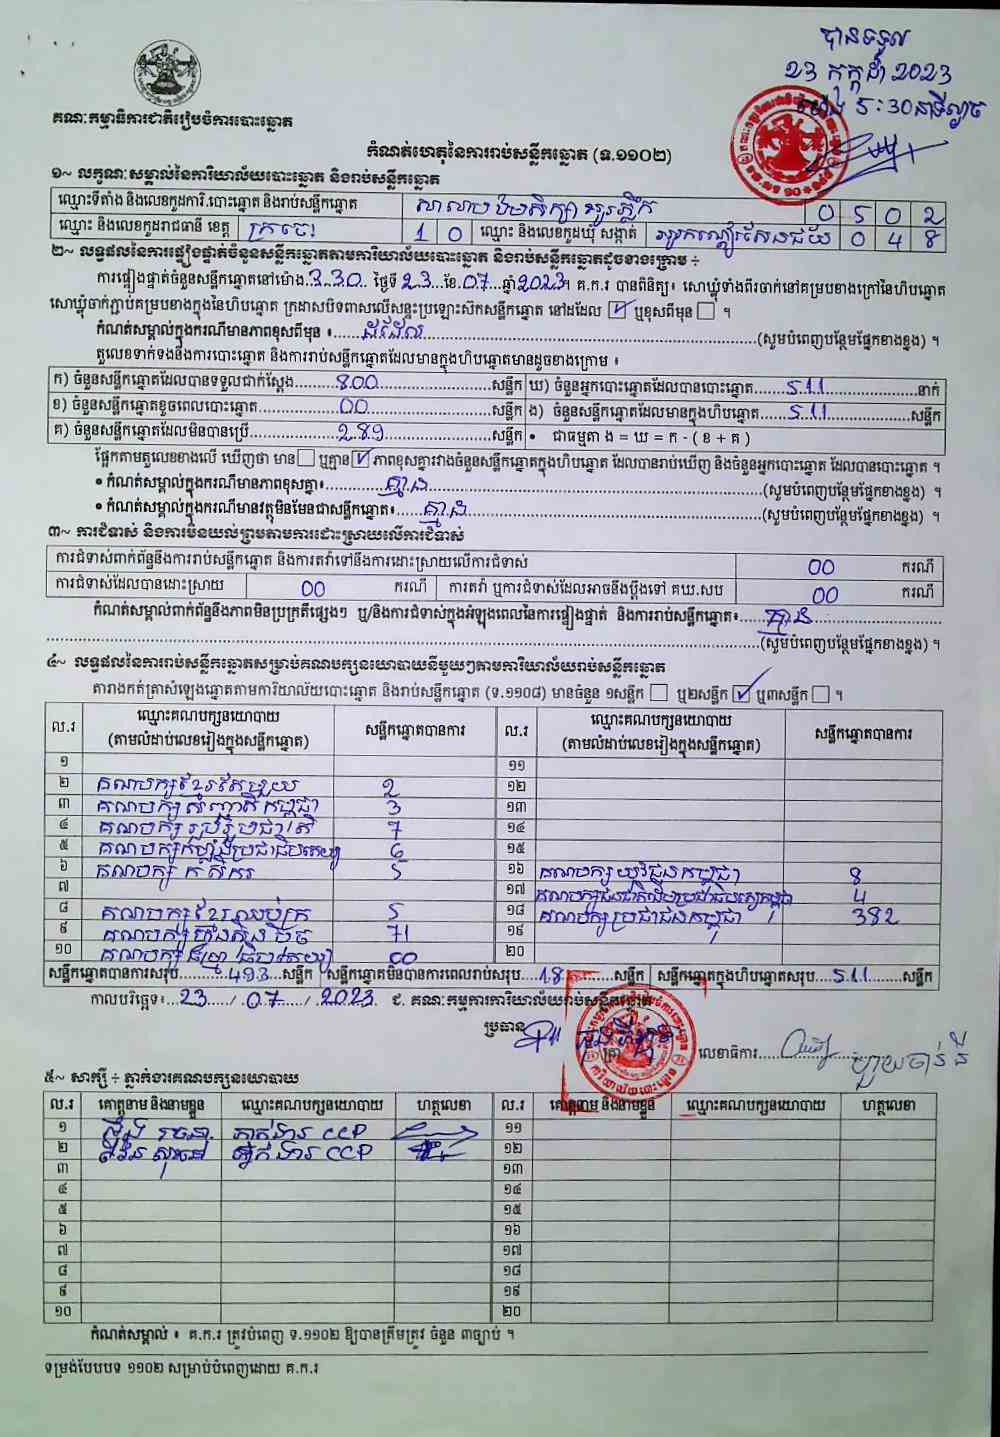 បានទទួល
23 កក្កដា 2023
ម៉ោង 5:30 នាទីល្ងាច
គណៈកម្មាធិការជាតិរៀបចំការបោះឆ្នោត
កំណត់ហេតុនៃការរាប់សន្លឹកឆ្នោត (ទ.១១០២)
១~ លក្ខណៈសម្គាល់នៃការិយាល័យបោះឆ្នោត និងរាប់សន្លឹកឆ្នោត
ឈ្មោះទីតាំង និងលេខកូដការិ.បោះឆ្នោត និងរាប់សន្លឹកឆ្នោត សាលាបឋមសិក្សា 0 5 0 2
ឈ្មោះ និងលេខកូដរាជធានី ខេត្ត ក្រចេះ 1 0 ឈ្មោះ និងលេខកូដឃុំ សង្កាត់ 0 4 8
២~ លទ្ធផលនៃការផ្ទៀងផ្ទាត់ចំនួនសន្លឹកឆ្នោតតាមការិយាល័យបោះឆ្នោត និងរាប់សន្លឹកឆ្នោតដូចខាងក្រោម ÷
ការផ្ទៀងផ្ទាត់ចំនួនសន្លឹកឆ្នោតនៅម៉ោង 3.30 ថ្ងៃទី 23 ខែ 07 ឆ្នាំ 2023។ គ.ក.រ បានពិនិត្យ៖ សោឃ្លុំទាំងពីរចាក់នៅគម្របខាងក្រៅនៃហិបឆ្នោត
សោឃ្លុំចាក់ភ្ជាប់គម្របខាងក្នុងនៃហិបឆ្នោត ក្រដាសបិទពាសលើសន្ទះប្រឡោះស៊កសន្លឹកឆ្នោត នៅដដែល ☑ ឬខុសពីមុន ☐ ។
កំណត់សម្គាល់ក្នុងករណីមានភាពខុសពីមុន ៖ ដដែល (សូមបំពេញបន្ថែមផ្នែកខាងខ្នង) ។
តួលេខទាក់ទងនឹងការបោះឆ្នោត និងការរាប់សន្លឹកឆ្នោតដែលមានក្នុងហិបឆ្នោតមានដូចខាងក្រោម ៖
ក) ចំនួនសន្លឹកឆ្នោតដែលបានទទួលជាក់ស្តែង 800 សន្លឹក ឃ) ចំនួនអ្នកបោះឆ្នោតដែលបានបោះឆ្នោត 511 នាក់
ខ) ចំនួនសន្លឹកឆ្នោតខូចពេលបោះឆ្នោត 00 សន្លឹក ង) ចំនួនសន្លឹកឆ្នោតដែលមានក្នុងហិបឆ្នោត 511 សន្លឹក
គ) ចំនួនសន្លឹកឆ្នោតដែលមិនបានប្រើ 289 សន្លឹក • ជាធម្មតា ង = ឃ = ក - ( ខ + គ )
ផ្អែកតាមតួលេខខាងលើ ឃើញថា មាន ☐ ឬគ្មាន ☑ ភាពខុសគ្នារវាងចំនួនសន្លឹកឆ្នោតក្នុងហិបឆ្នោត ដែលបានរាប់ឃើញ និងចំនួនអ្នកបោះឆ្នោត ដែលបានបោះឆ្នោត ។
• កំណត់សម្គាល់ក្នុងករណីមានភាពខុសគ្នា៖ គ្មាន (សូមបំពេញបន្ថែមផ្នែកខាងខ្នង) ។
• កំណត់សម្គាល់ក្នុងករណីមានវត្ថុមិនមែនជាសន្លឹកឆ្នោត៖ គ្មាន (សូមបំពេញបន្ថែមផ្នែកខាងខ្នង) ។
៣~ ការជំទាស់ និងការមិនយល់ព្រមតាមការដោះស្រាយលើការជំទាស់
ការជំទាស់ពាក់ព័ន្ធនឹងការរាប់សន្លឹកឆ្នោត និងការតវ៉ាទៅនឹងការដោះស្រាយលើការជំទាស់ 00 ករណី
ការជំទាស់ដែលបានដោះស្រាយ 00 ករណី ការតវ៉ា ឬការជំទាស់ដែលអាចនឹងប្តឹងទៅ គឃ.សប 00 ករណី
កំណត់សម្គាល់ពាក់ព័ន្ធនឹងភាពមិនប្រក្រតីផ្សេងៗ ឬ/និងការជំទាស់ក្នុងអំឡុងពេលនៃការផ្ទៀងផ្ទាត់ និងការរាប់សន្លឹកឆ្នោត៖ គ្មាន
(សូមបំពេញបន្ថែមផ្នែកខាងខ្នង) ។
៤~ លទ្ធផលនៃការរាប់សន្លឹកឆ្នោតសម្រាប់គណបក្សនយោបាយនីមួយៗតាមការិយាល័យរាប់សន្លឹកឆ្នោត
តារាងកត់ត្រាសំឡេងឆ្នោតតាមការិយាល័យបោះឆ្នោត និងរាប់សន្លឹកឆ្នោត (ទ.១១០៨) មានចំនួន ១សន្លឹក ☐ ឬ២សន្លឹក ☑ ឬ៣សន្លឹក ☐ ។
ល.រ ឈ្មោះគណបក្សនយោបាយ (តាមលំដាប់លេខរៀងក្នុងសន្លឹកឆ្នោត) សន្លឹកឆ្នោតបានការ ល.រ ឈ្មោះគណបក្សនយោបាយ (តាមលំដាប់លេខរៀងក្នុងសន្លឹកឆ្នោត) សន្លឹកឆ្នោតបានការ
១ ១១
២ គណបក្សខ្មែរតែមួយ 2 ១២
៣ គណបក្ស សញ្ជាតិកម្ពុជា 3 ១៣
៤ គណបក្ស រួបរួមជាតិ 7 ១៤
៥ គណបក្សកម្លាំងប្រជាធិបតេយ្យ 6 ១៥
៦ គណបក្ស កសិករ 5 ១៦ គណបក្ស យុវជនកម្ពុជា 8
៧ ១៧ 4
៨ គណបក្សខ្មែរឈប់ក្រ 5 ១៨ គណបក្ស ប្រជាជនកម្ពុជា 382
៩ គណបក្ស ហ្វ៊ុនស៊ិនប៉ិច 71 ១៩
១០ 00 ២០
សន្លឹកឆ្នោតបានការសរុប 493 សន្លឹក សន្លឹកឆ្នោតមិនបានការពេលរាប់សរុប 18 សន្លឹក សន្លឹកឆ្នោតក្នុងហិបឆ្នោតសរុប 511 សន្លឹក
កាលបរិច្ឆេទ៖ 23 / 07 / 2023 ជ. គណៈកម្មការការិយាល័យរាប់សន្លឹកឆ្នោត
ប្រធាន លេខាធិការ
៥~ សាក្សី ÷ ភ្នាក់ងារគណបក្សនយោបាយ
ល.រ គោត្តនាម និងនាមខ្លួន ឈ្មោះគណបក្សនយោបាយ ហត្ថលេខា ល.រ គោត្តនាម និងនាមខ្លួន ឈ្មោះគណបក្សនយោបាយ ហត្ថលេខា
១ ភ្នាក់ងារ CCP ១១
២ ភ្នាក់ងារ CCP ១២
៣ ១៣
៤ ១៤
៥ ១៥
៦ ១៦
៧ ១៧
៨ ១៨
៩ ១៩
១០ ២០
កំណត់សម្គាល់ ៖ គ.ក.រ ត្រូវបំពេញ ទ.១១០២ ឱ្យបានត្រឹមត្រូវ ចំនួន ៣ច្បាប់ ។
ទម្រង់បែបបទ ១១០២ សម្រាប់បំពេញដោយ គ.ក.រ